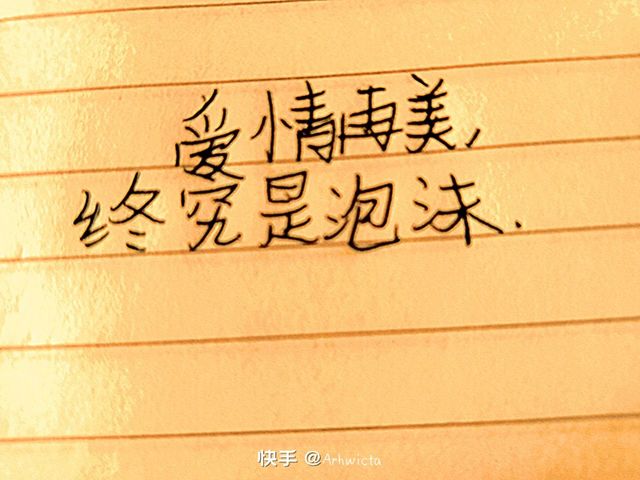 爱情再美,
终究是泡沫.
快手 @Arhwicta